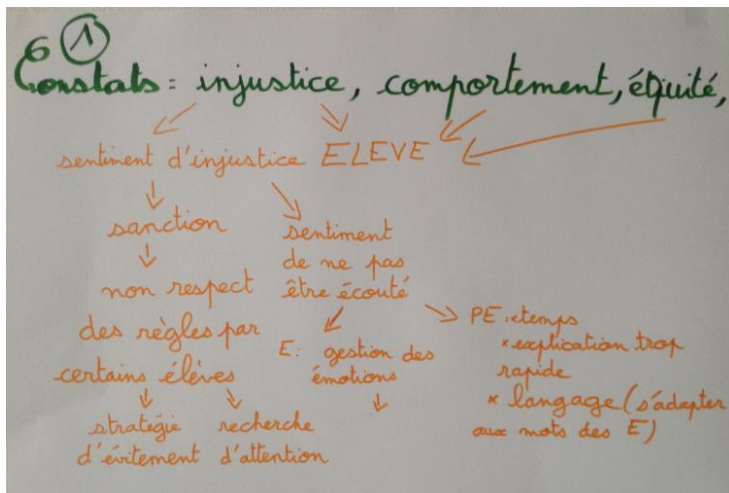 6 1
Constats = injustice, comportement, équité,
sentiment d'injustice ELEVE
sanction
non respect
des règles par
certains élèves
stratégie
d'évitement
recherche
d'attention
sentiment
de ne pas
être écouté
E: gestion des
émotions
PE: × temps
× explication trop
rapide
× langage (s'adapter
aux mots des E)